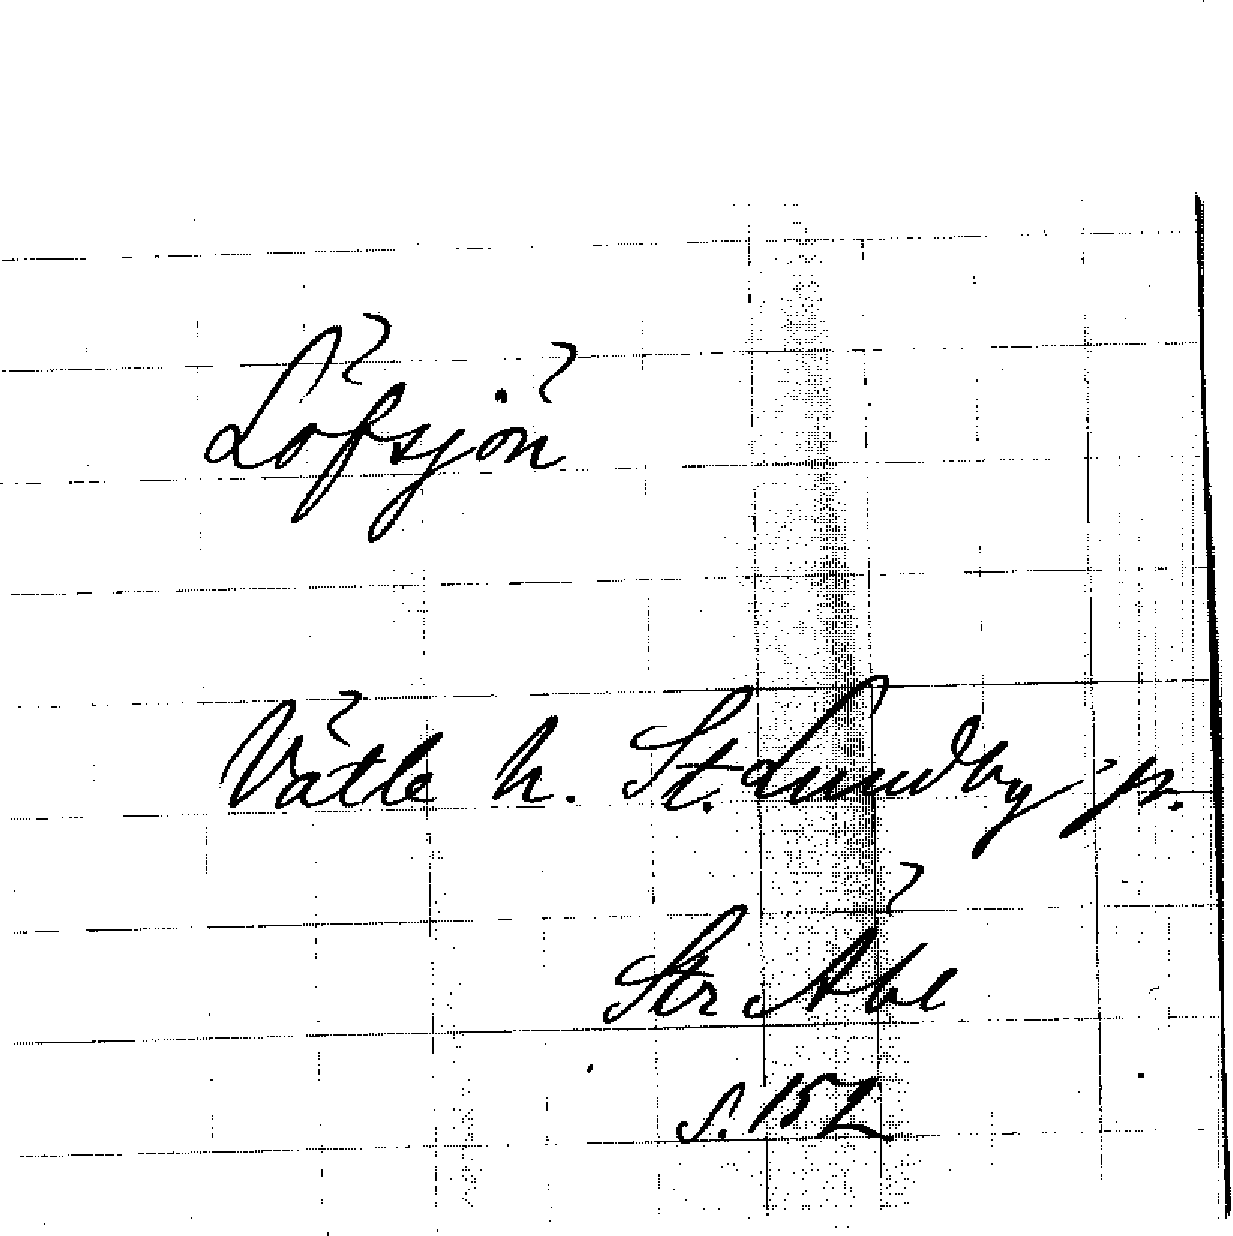 Löfsjön
Vätle h. St. Lundby p.
Str Åbe
s. 152